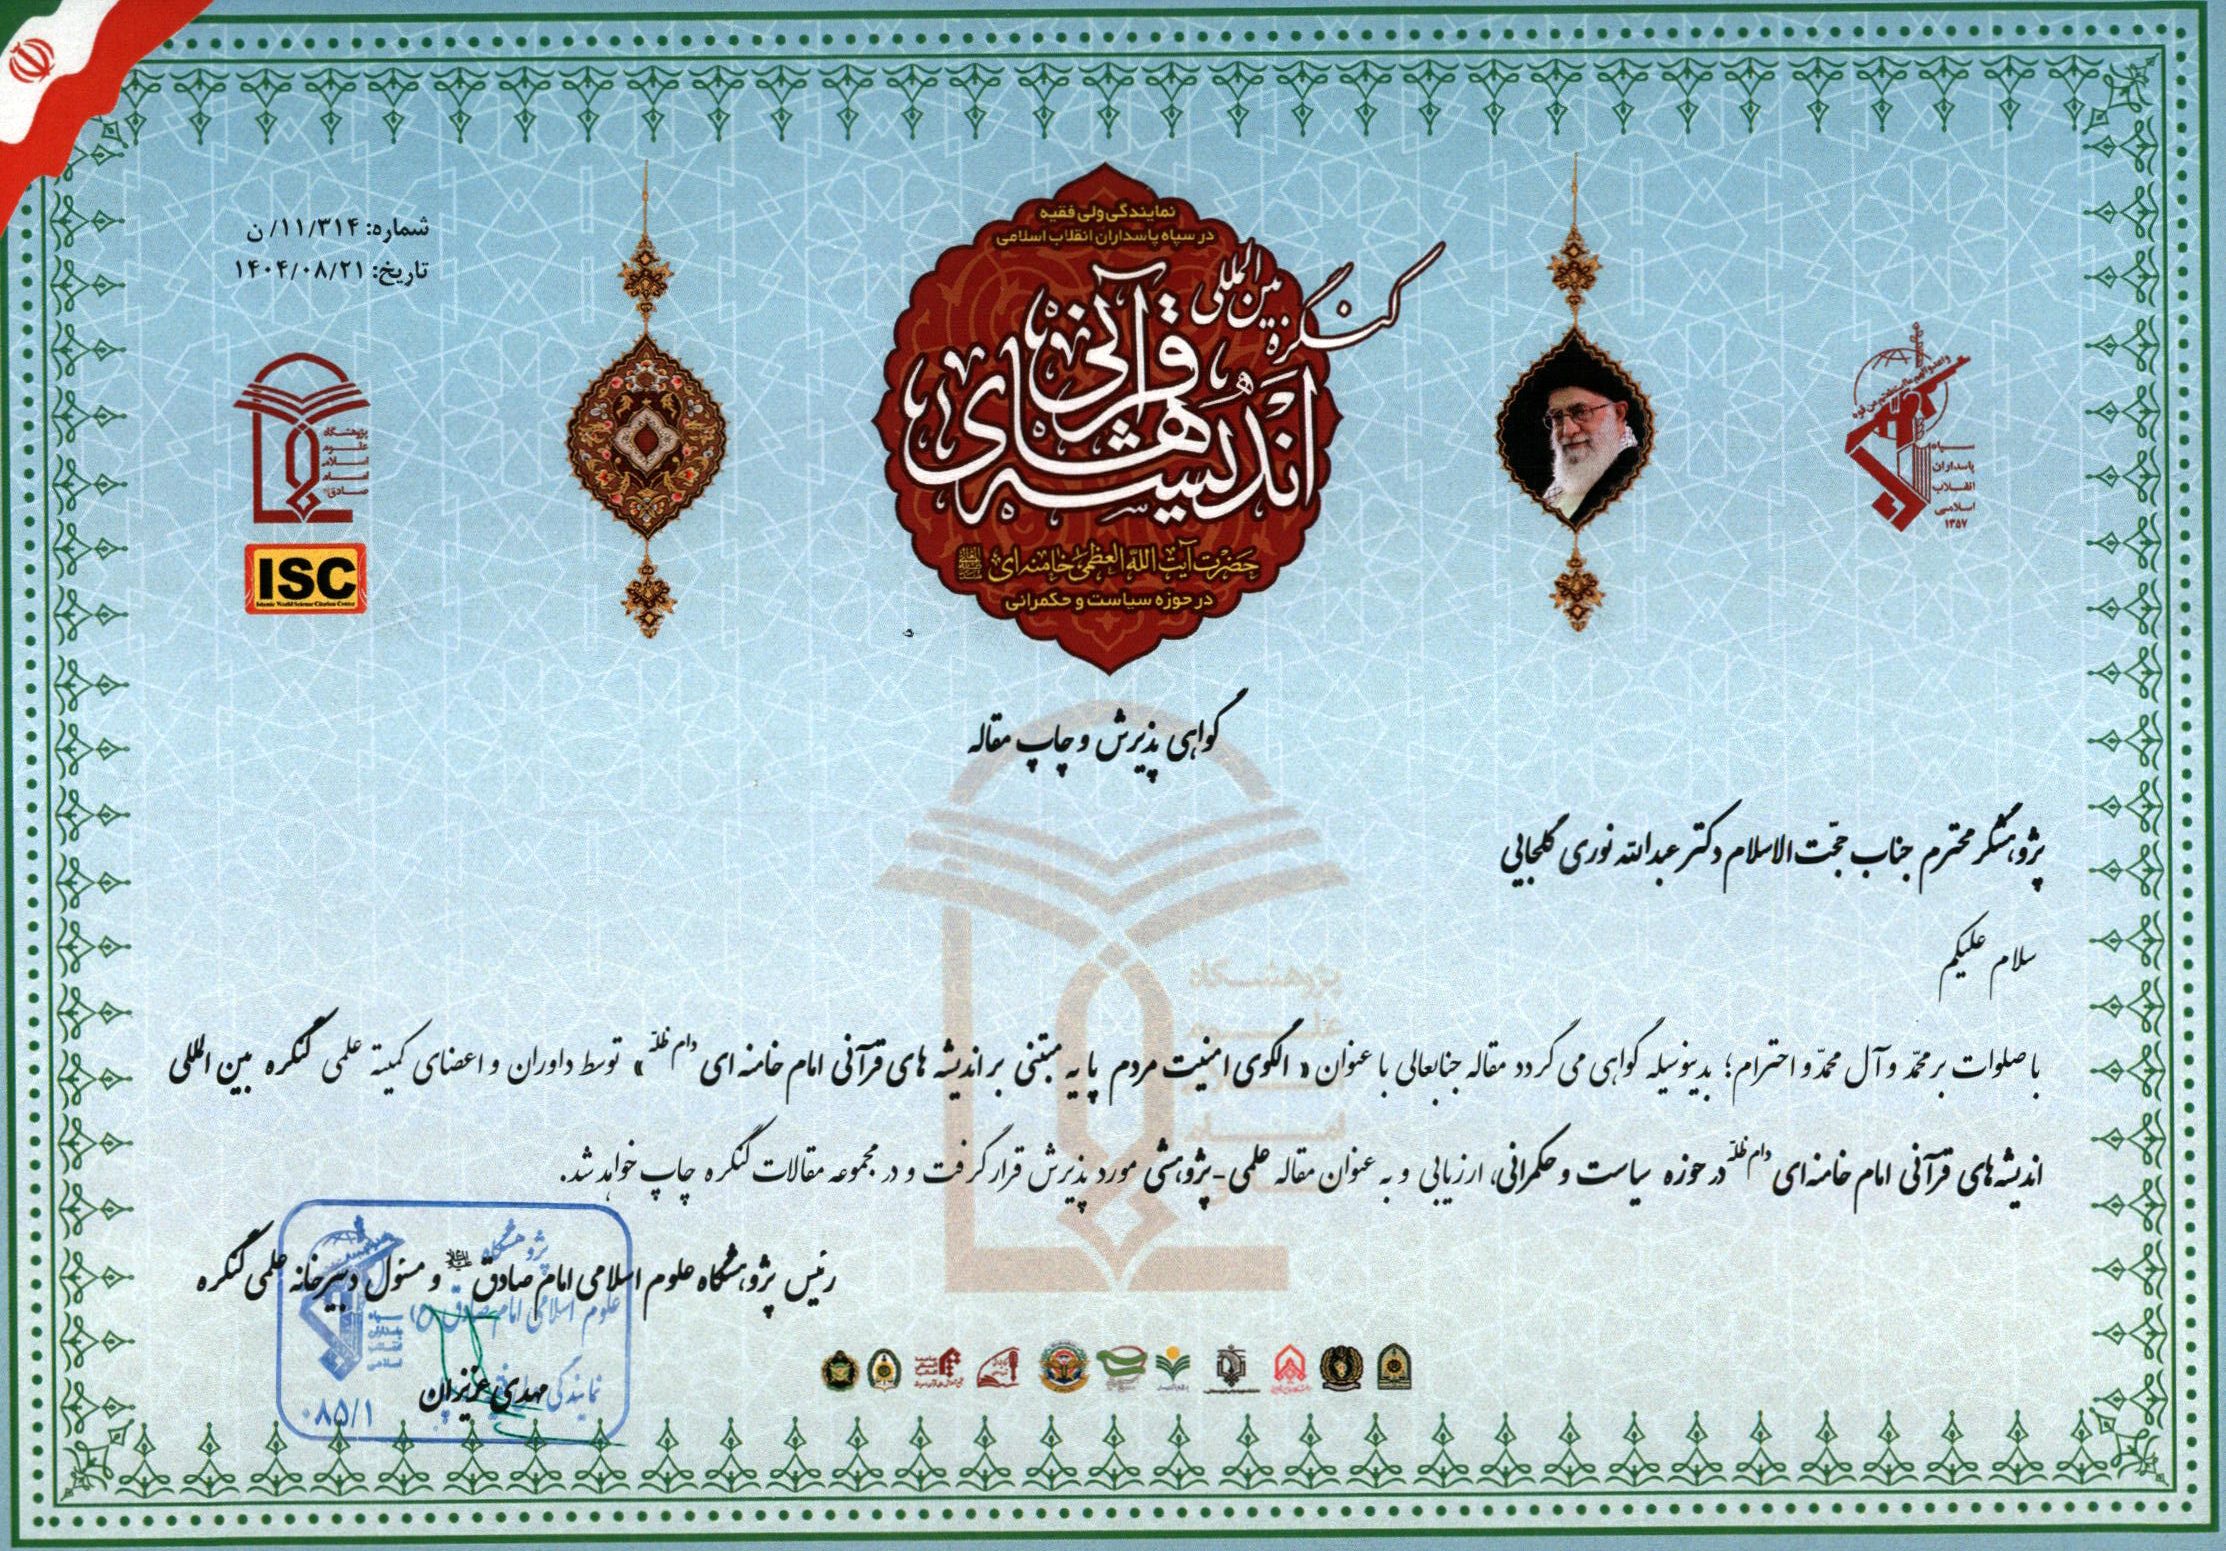 شماره: ۱۱/۳۱۴/ ن
تاریخ: ۱۴۰۴/۰۸/۲۱
نمایندگی ولی فقیه
در سپاه پاسداران انقلاب اسلامی
کنگره بین المللی
اندیشه های قرآنی
حضرت آیت الله العظمی خامنه ای
در حوزه سیاست و حکمرانی
سپاه
پاسداران
انقلاب
اسلامی
۱۳۵۷
پژوهشگاه
علوم
اسلامی
امام
صادق
ISC
Islamic World Science Citation Center
گواهی پذیرش و چاپ مقاله
پژوهشگر محترم جناب حجّت الاسلام دکتر عبدالله نوری گلجایی
سلام علیکم
با صلوات بر محمّد و آل محمّد و احترام؛ بدینوسیله گواهی می گردد مقاله جنابعالی با عنوان « الگوی امنیت مردم پایه مبتنی بر اندیشه های قرآنی امام خامنه ای دام ظلّه » توسط داوران و اعضای کمیته علمی کنگره بین المللی
اندیشه های قرآنی امام خامنه ای دام ظلّه در حوزه سیاست و حکمرانی، ارزیابی و به عنوان مقاله علمی-پژوهشی مورد پذیرش قرار گرفت و در مجموعه مقالات کنگره چاپ خواهد شد.
رئیس پژوهشگاه علوم اسلامی امام صادق و مسئول دبیرخانه علمی کنگره
مهدی عزیزان
پژوهشگاه
علوم اسلامی امام صادق (ع)
سپاه
پاسداران
انقلاب
اسلامی
نمایندگی
۰۸۵/۱